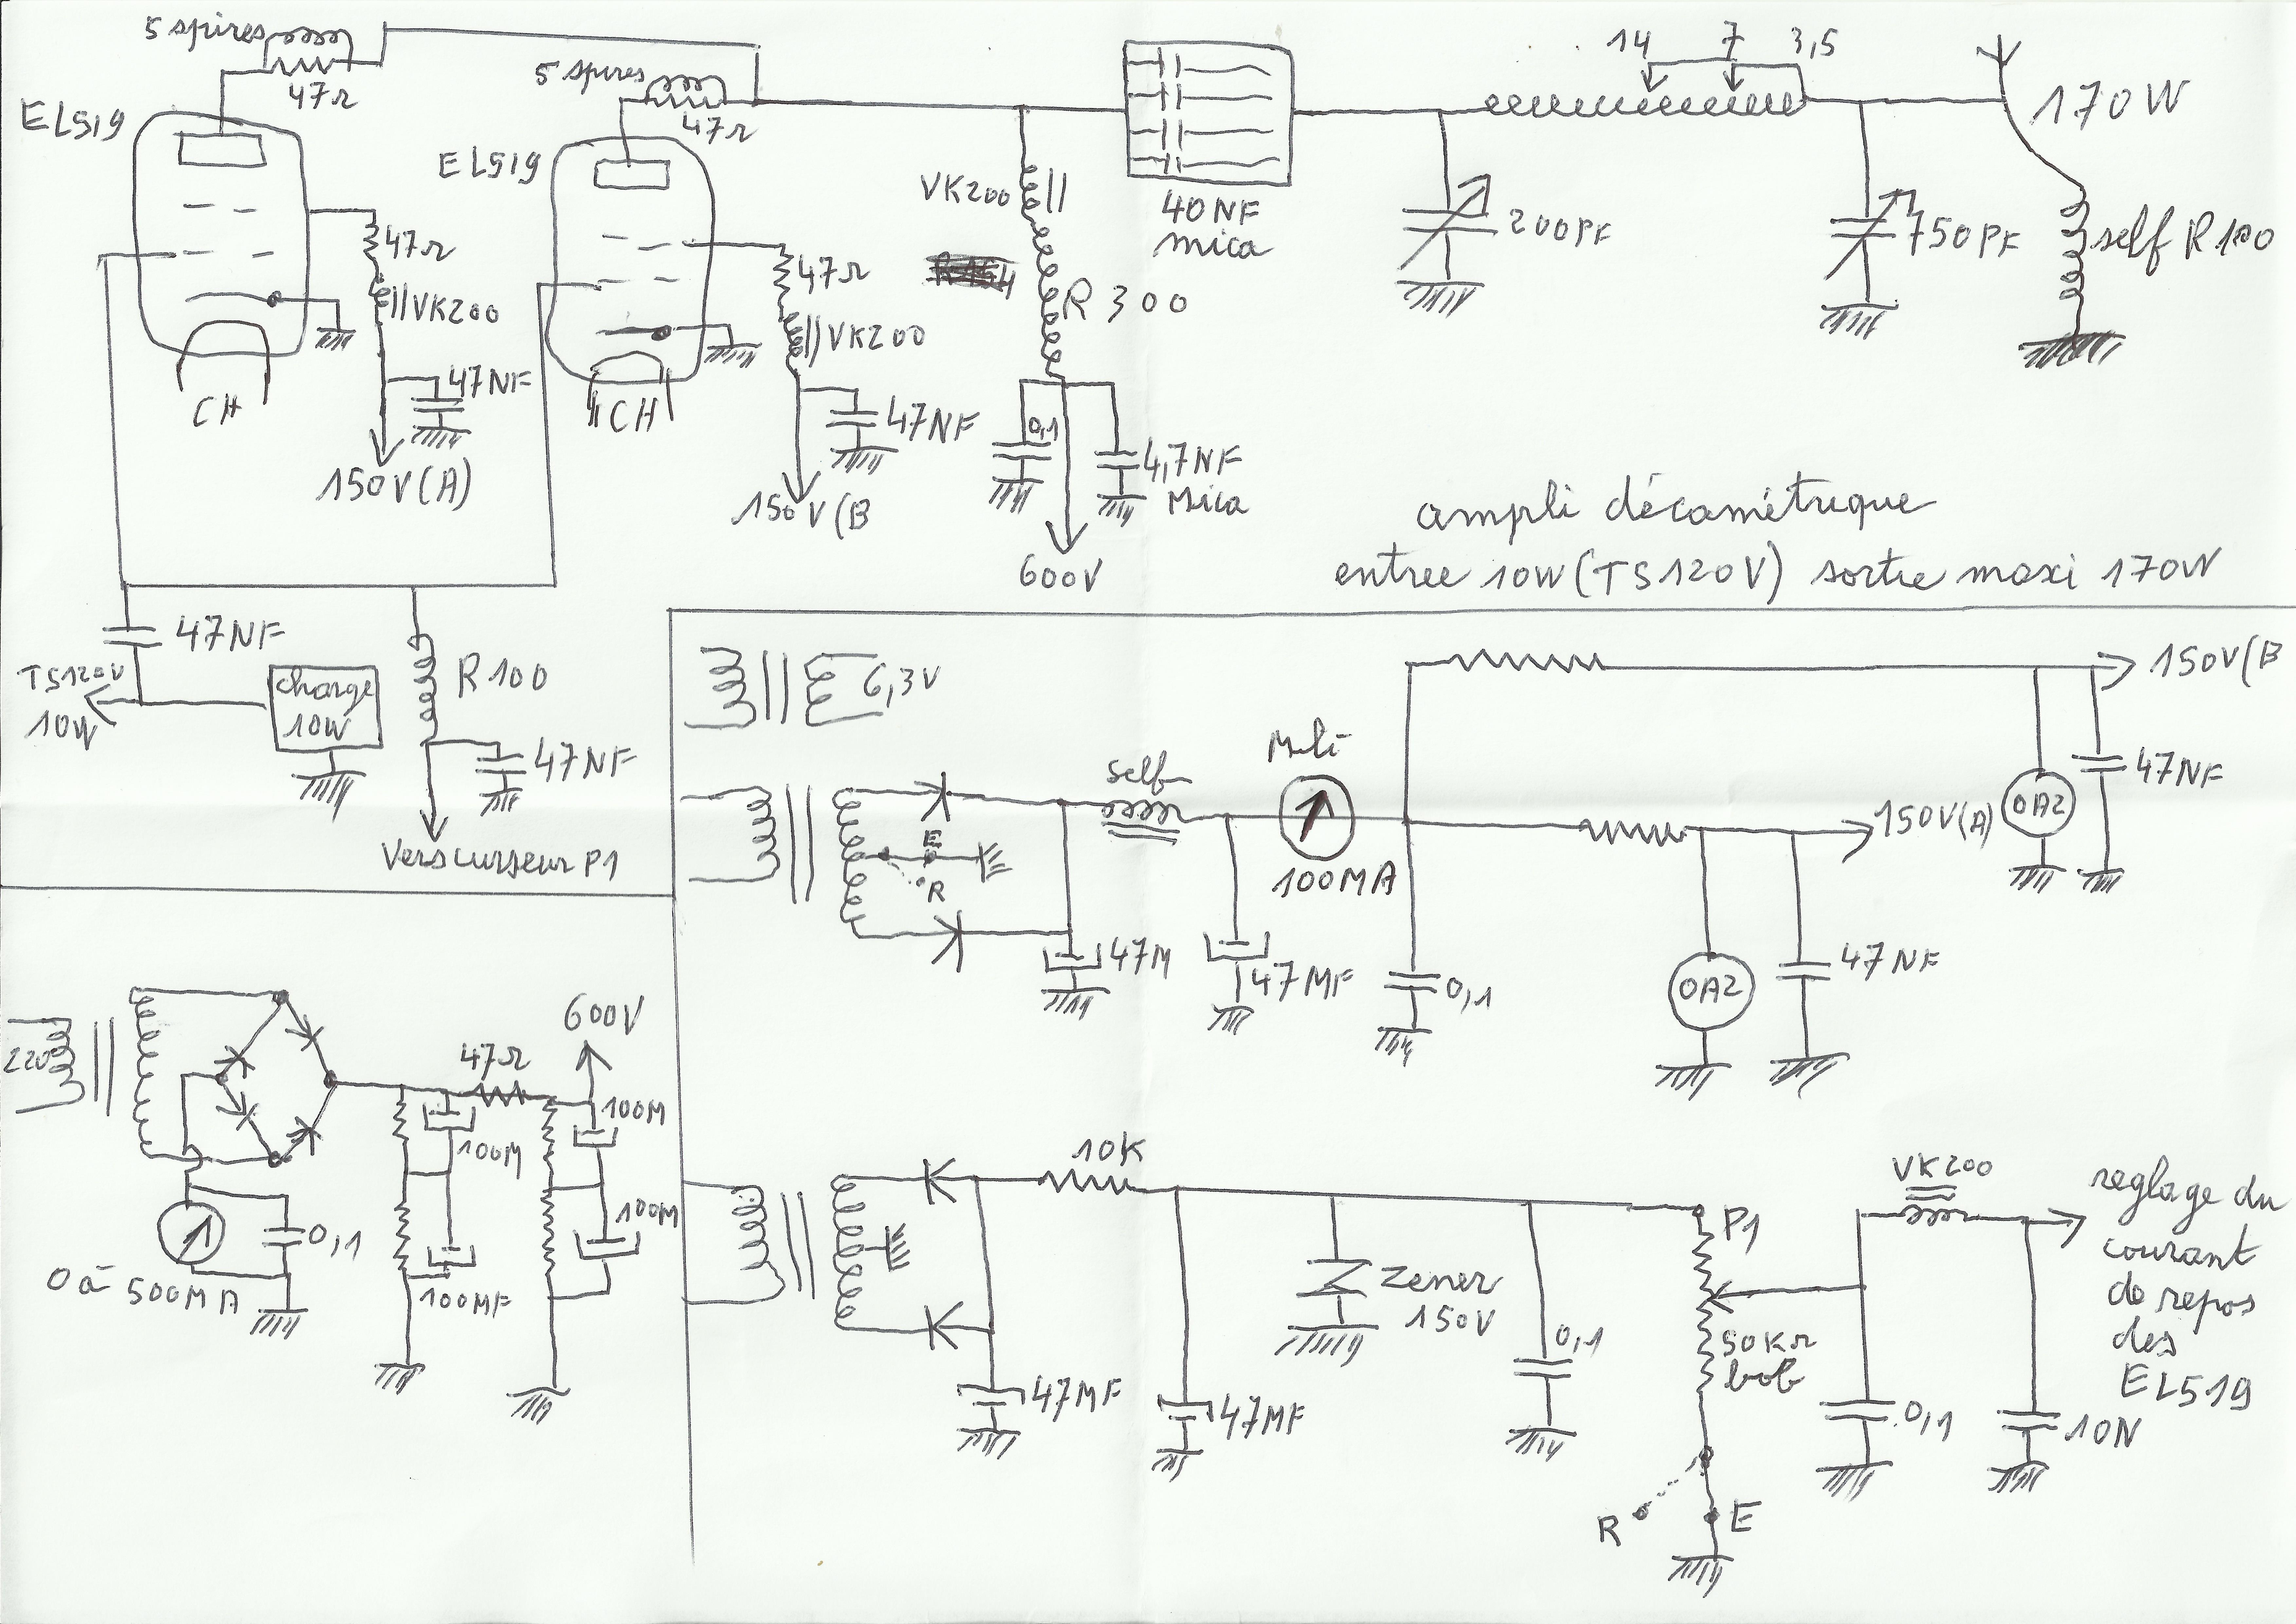 5 spires
47Ω
EL519
CH
47Ω
VK200
47NF
150V(A)
5 spires
47Ω
EL519
CH
47Ω
VK200
47NF
150V(B
VK200
R 300
0,1
4,7NF
Mica
600V
40NF
mica
14 7 3,5
200PF
750PF
170W
self R100
ampli décamétrique
entree 10W (TS120V) sortie maxi 170W
47NF
TS120V
10W
charge
10W
R 100
47NF
Vers curseur P1
6,3V
E
R
self
47M
47MF
100MA
0,1
150V(B
47NF
OA2
150V(A)
OA2
47NF
220
0,1
0 à 500MA
47Ω
600V
100M
100MF
100M
100M
10K
47MF
47MF
Zener
150V
0,1
P1
50KΩ
bob
R
E
VK200
0,1
10N
reglage du
courant
de repos
des
EL519